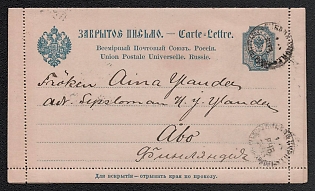 ЗАКРЫТОЕ ПИСЬМО. — Carte-Lettre.
Всемірный Почтовый Союзъ. Россія.
Union Postale Universelle, Russie.
Fröken Aina Ylander
adr. Diplomam H. J. Ylander
Åbo
Финляндія
Для вскрытія — отрывать края по проколу.